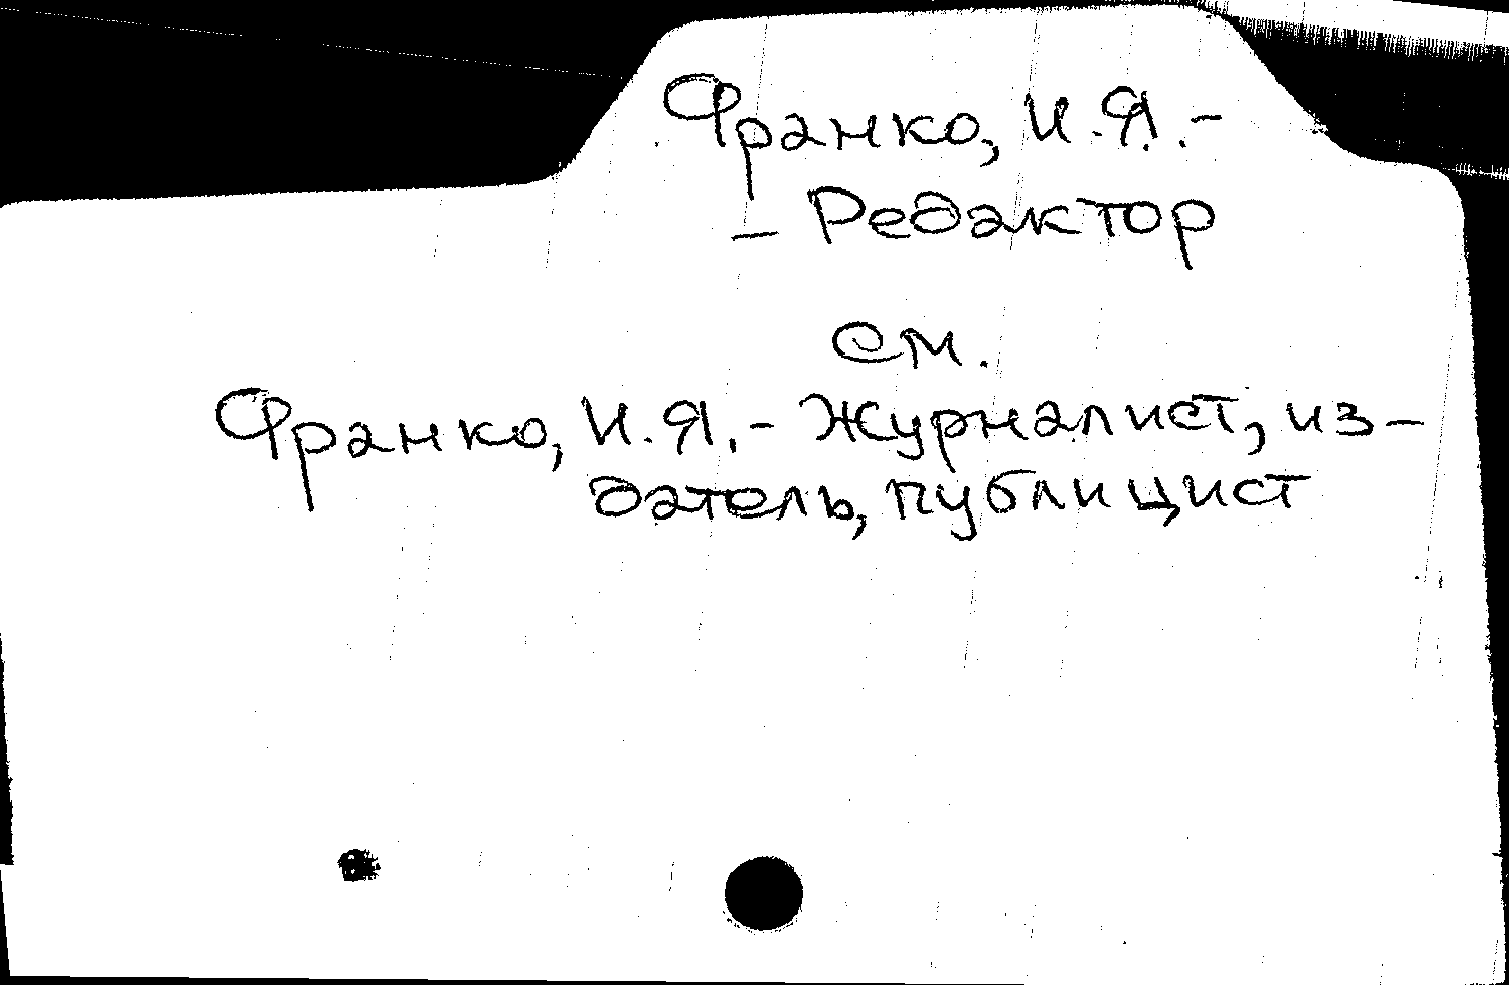 Франко, И.Я.-
- Редактор
см.
Франко, И.Я.- Журналист, из-
датель, публицист